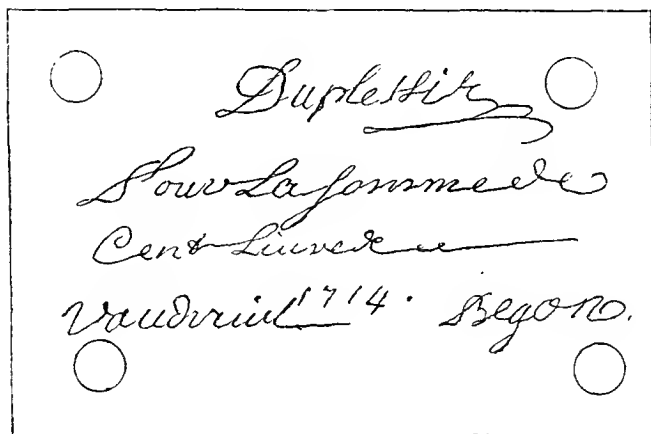 Duplessis
Pour La Somme de
Cent Livres
Vaudreuil 1714. Begon.